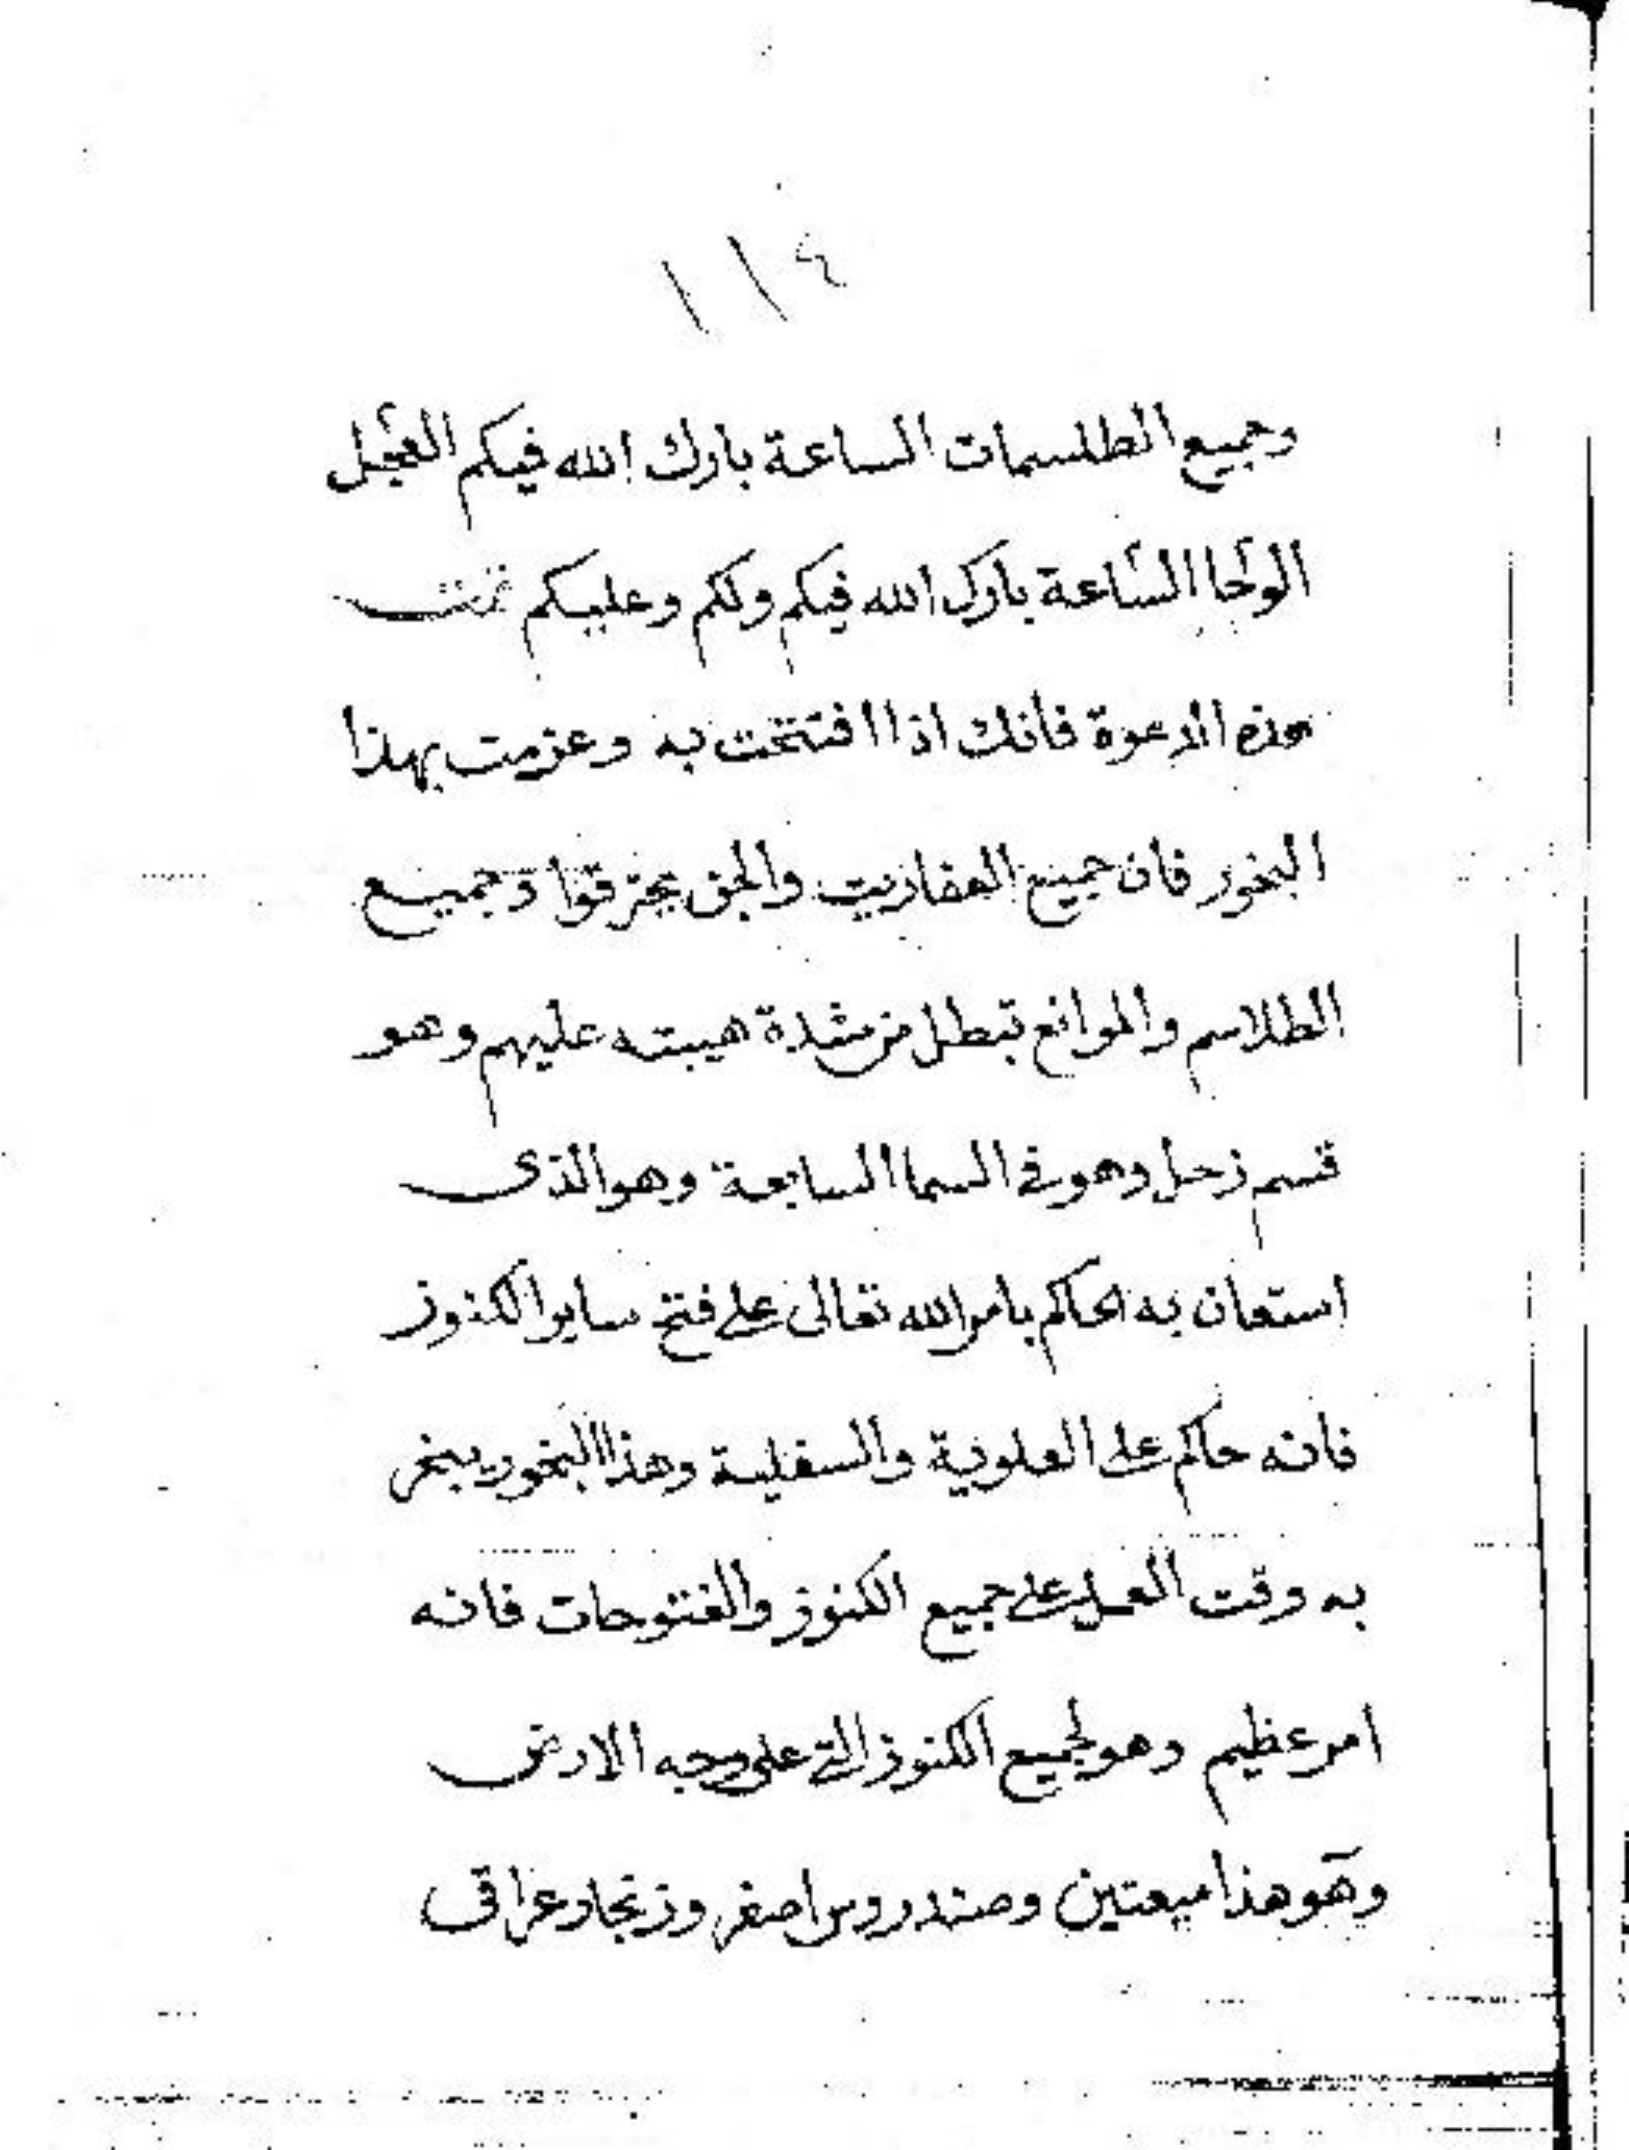 ١١٤
وجميع الطلسمات الساعة بارك الله فيكم العجل
الوحا الساعة بارك الله فيكم ولكم وعليكم تمت
هذه الدعوة فانك اذا افتتحت به وعزمت بهذا
البخور فان جميع العفاريت والجن يحترقوا وجميع
الطلاسم والموانع تبطل من شدة هيبته عليهم وهو
قسم زحل وهو في السما السابعة وهو الذى
استعان به الحاكم بامر الله تعالى على فتح ساير الكنوز
فانه حاكم على العلوية والسفلية وهذا البخور يبخر
به وقت العمل على جميع الكنوز والفتوحات فانه
امر عظيم وهو لجميع الكنوز التي على وجه الارض
وهو هذا ميعتين وصندروس اصفر وزنجار عراقى